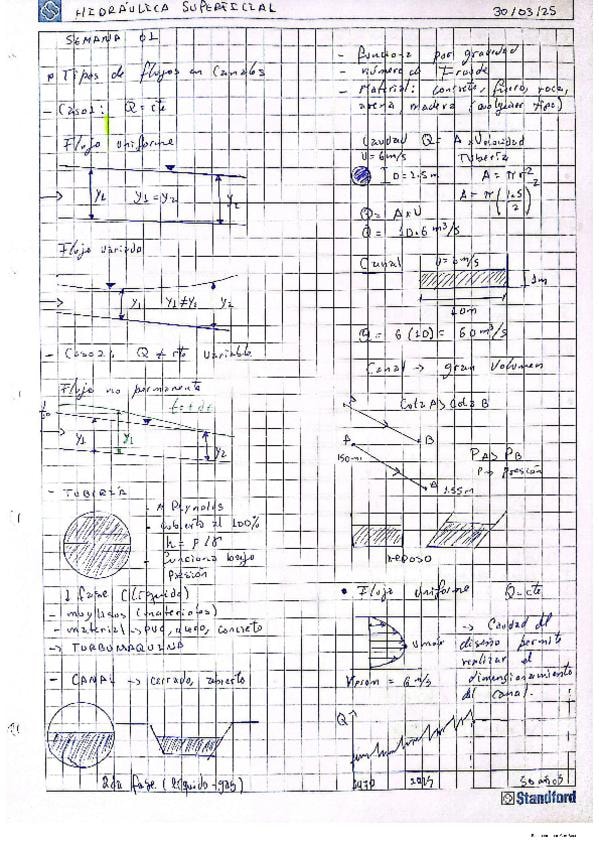 HIDRÁULICA SUPERFICIAL
30/03/25
SEMANA 01
Tipos de flujos en Canales
- Caso 1: Q = cte
Flujo uniforme
y1 y1 = y2 y2
Flujo variado
y1 y1 ≠ y2 y2
- Caso 2: Q ≠ cte variable
Flujo no permanente
to to + dt
y1 y1 y2
- TUBERÍA
- N Reynolds
- cubierto al 100%
h = P/γ
- Funciona bajo
presión
1 fase (líquido)
- muy lisos (materiales)
- material → PVC, , concreto
→ TURBOMAQUINA
- CANAL → cerrado, abierto
2da fase (líquido-gas)
- funciona por gravedad
- número de Froude
- Material: concreto, fierro, roca,
arena, madera (cualquier tipo)
Caudal Q = A x Velocidad
V = 6 m/s Tubería
D = 1.5 m A = π r²
A = π (1.5/2)²
Q = A x V
Q = 10.6 m³/s
Canal V = 6 m/s
1m
10m
Q = 6 (10) = 60 m³/s
Canal → gran Volumen
Cota A > Cota B
B
A
150m
PA > PB
P → presión
B 155m
REPOSO
• Flujo Uniforme Q = cte
V máx
Vprom = 6 m/s
→ Caudal del
diseño permite
realizar el
dimensionamiento
del canal.
Q
1970 2025 50 años
Standford